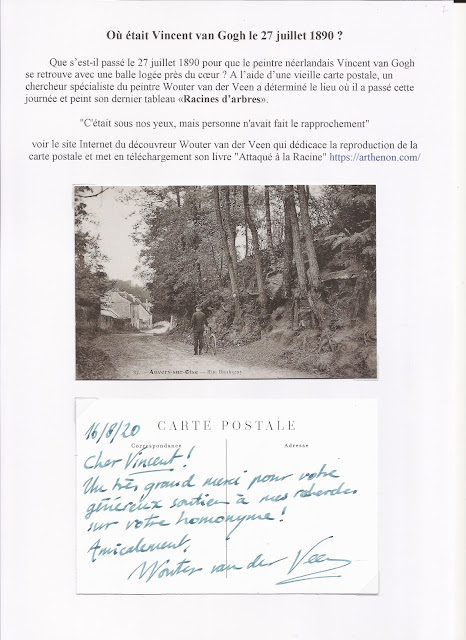 Où était Vincent van Gogh le 27 juillet 1890 ?
Que s'est-il passé le 27 juillet 1890 pour que le peintre néerlandais Vincent van Gogh
se retrouve avec une balle logée près du cœur ? A l'aide d'une vieille carte postale, un
chercheur spécialiste du peintre Wouter van der Veen a déterminé le lieu où il a passé cette
journée et peint son dernier tableau «Racines d'arbres».
"C'était sous nos yeux, mais personne n'avait fait le rapprochement"
voir le site Internet du découvreur Wouter van der Veen qui dédicace la reproduction de la
carte postale et met en téléchargement son livre "Attaqué à la Racine" https://arthenon.com/
Auvers-sur-Oise — Rue Daubigny
CARTE POSTALE
Correspondance
Adresse
16/8/20
Cher Vincent !
Un très grand merci pour votre
généreux soutien à mes recherches
sur votre homonyme !
Amicalement,
Wouter van der Veen